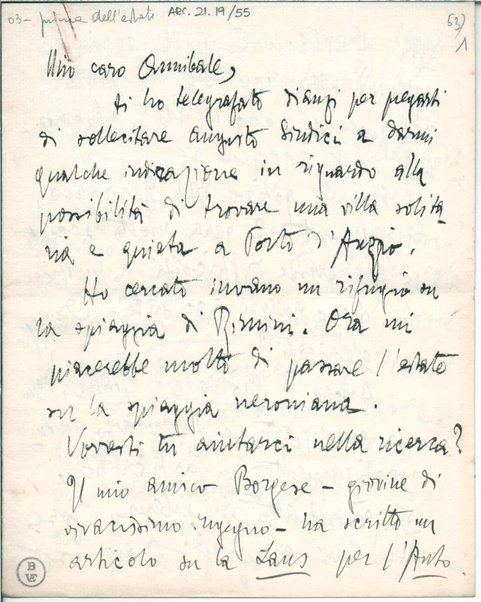 03- prima dell'estate ARC. 21. 19/55
53/1
Mio caro Annibale,
ti ho telegrafato dianzi per pregarti
di sollecitare Augusto Sindici a darmi
qualche indicazione in riguardo alla
possibilità di trovare una villa solita
ria e quieta a Porto d'Anzio.
Ho cercato invano un rifugio su
la spiaggia di Rimini. Ora mi
piacerebbe molto di passare l'estate
su la spiaggia neroniana.
Vorresti tu aiutarci nella ricerca?
Il mio amico Borgese – giovine di
vivacissimo ingegno – ha scritto un
articolo su la Laus per l'Auto
BVE